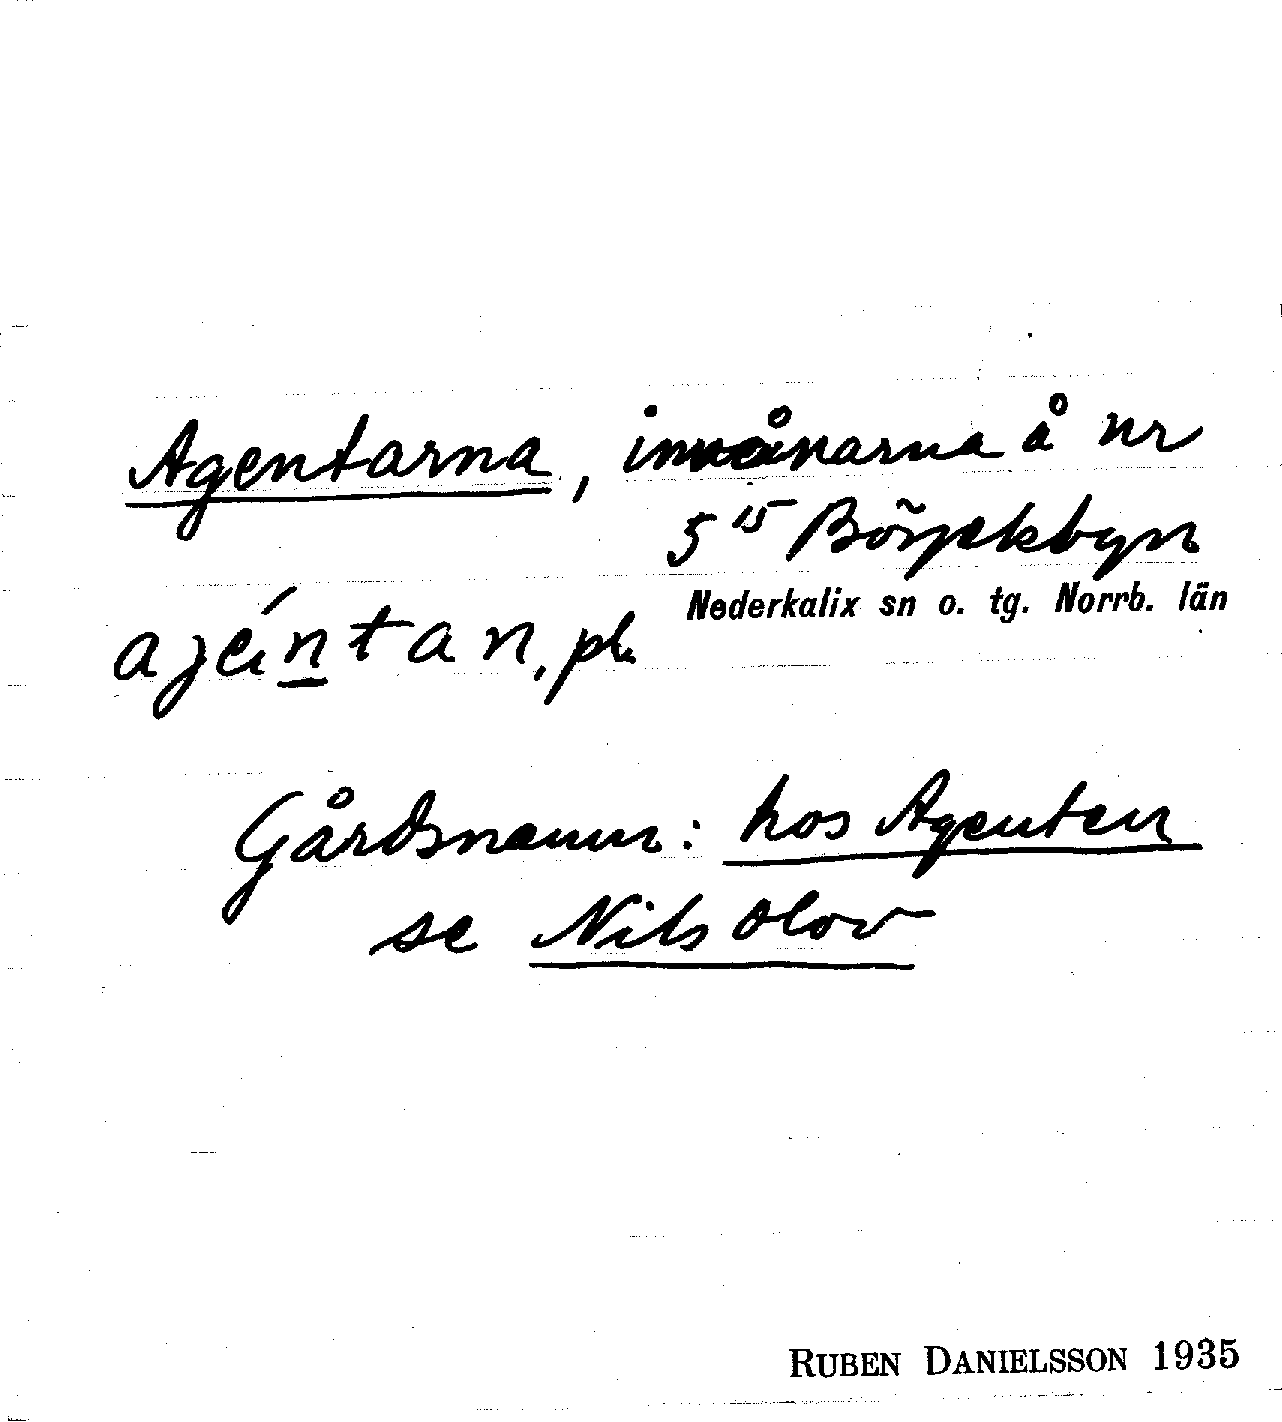 Agentarna, invånarna å nr
5¹⁵ Börjelsbyn
Nederkalix sn o. tg. Norrb. län
ajéntan, pl.
Gårdsnamn: hos Agenten
se Nils Olov
RUBEN DANIELSSON 1935